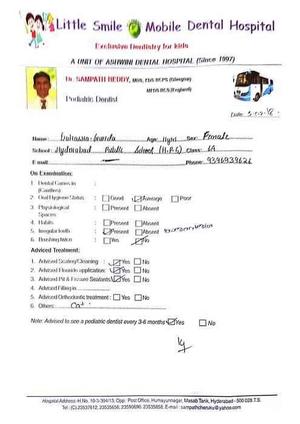 Little Smile Mobile Dental Hospital
Exclusive Dentistry for kids
A UNIT OF ASHWIN DENTAL HOSPITAL (Since 1997)
Dr. SAMPATH REDDY, MDS, FDS RCPS (Glasgow)
MFDS RCS (England)
Pediatric Dentist
Date:
Name: Age: 11yrs Sex: Female
School: Hyderabad Public School (H.P.S) Class: 6A
E mail Phone:
On Examination:
1. Dental Caries in :
(Cavities)
2. Oral Hygiene Status : Good Average Poor
3. Physiological : Present Absent
Spaces
4. Habits : Present Absent
5. Irregular teeth : Present Absent
6. Brushing twice : Yes No
Adviced Treatment:
1. Advised Scaling/Cleaning : Yes No
2. Advised Fluoride application: Yes No
3. Advised Pit & Fissure Sealants: Yes No
4. Advised Filling in
5. Advised Orthodontic treatment : Yes No
6. Others:
Note: Advised to see a pediatric dentist every 3-6 months Yes No
Hospital Address: H.No. 10-3-304/13, Opp. Post Office, Humayunnagar, Masab Tank, Hyderabad - 500 028 T.S.